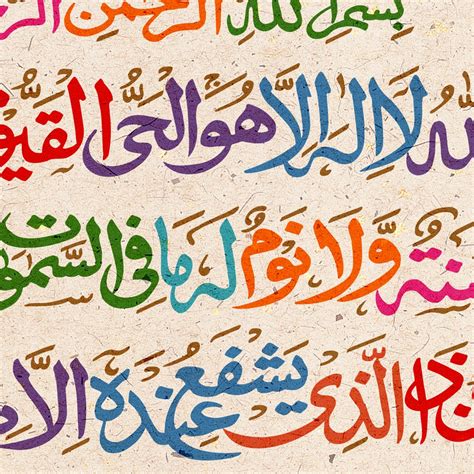 بسم الله الرحمن الر
لله لا اله الا هو الحى القيو
سنة ولا نوم له ما فى السموت
ذا الذى يشفع عنده الا